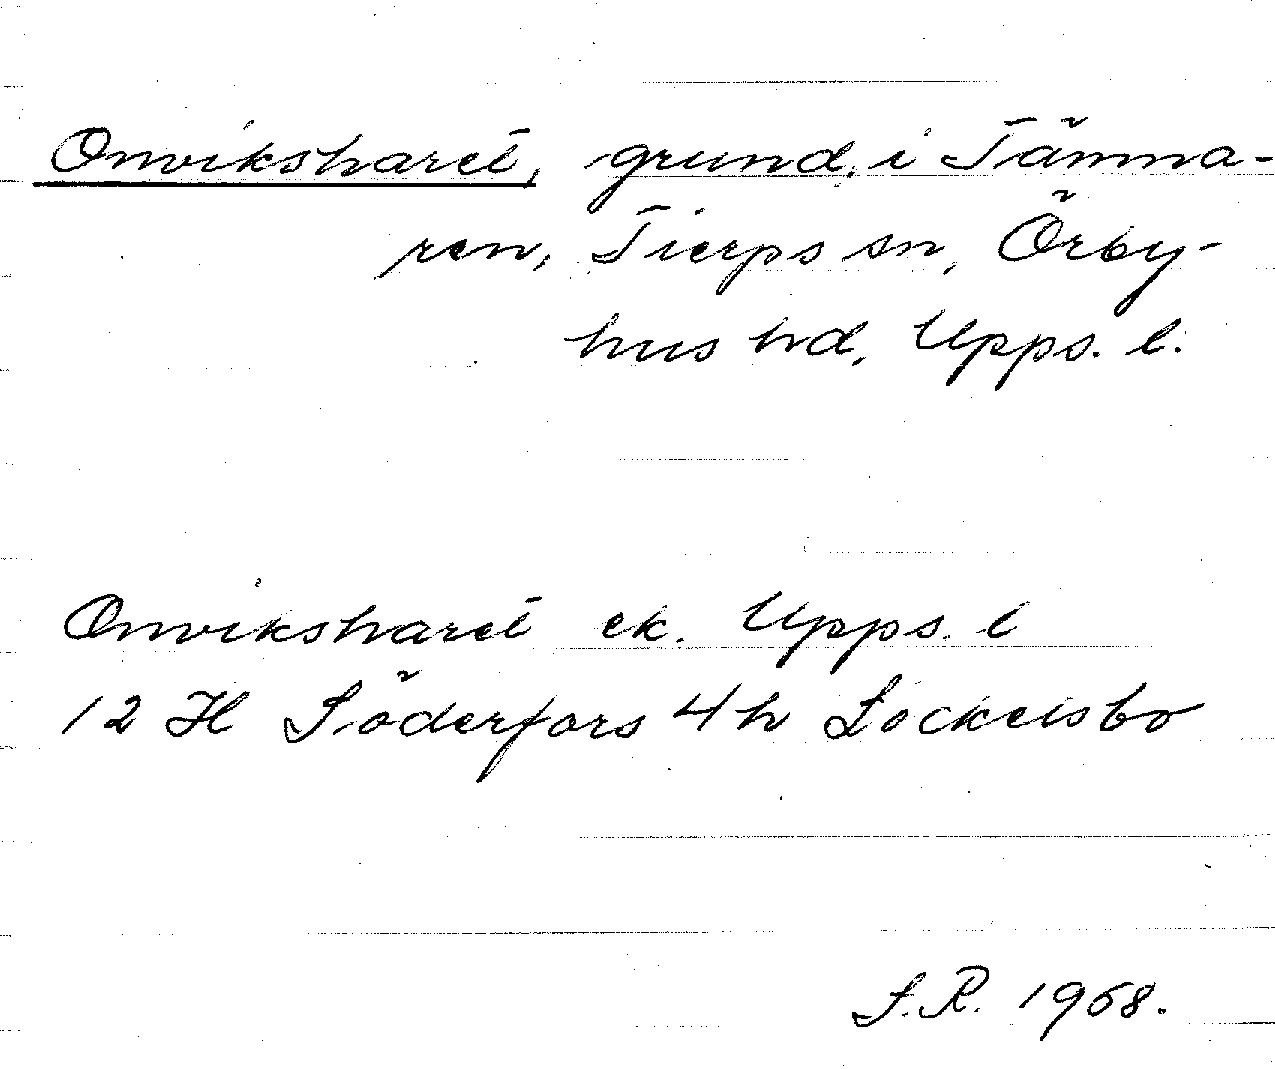 Onviksharet, grund, i Tämna-
ren, Tierps sn, Örby-
hus hd, Upps. l.
Onviksharet ek. Upps. l
12 H Söderfors 4h Lockelsbo
S.R. 1968.